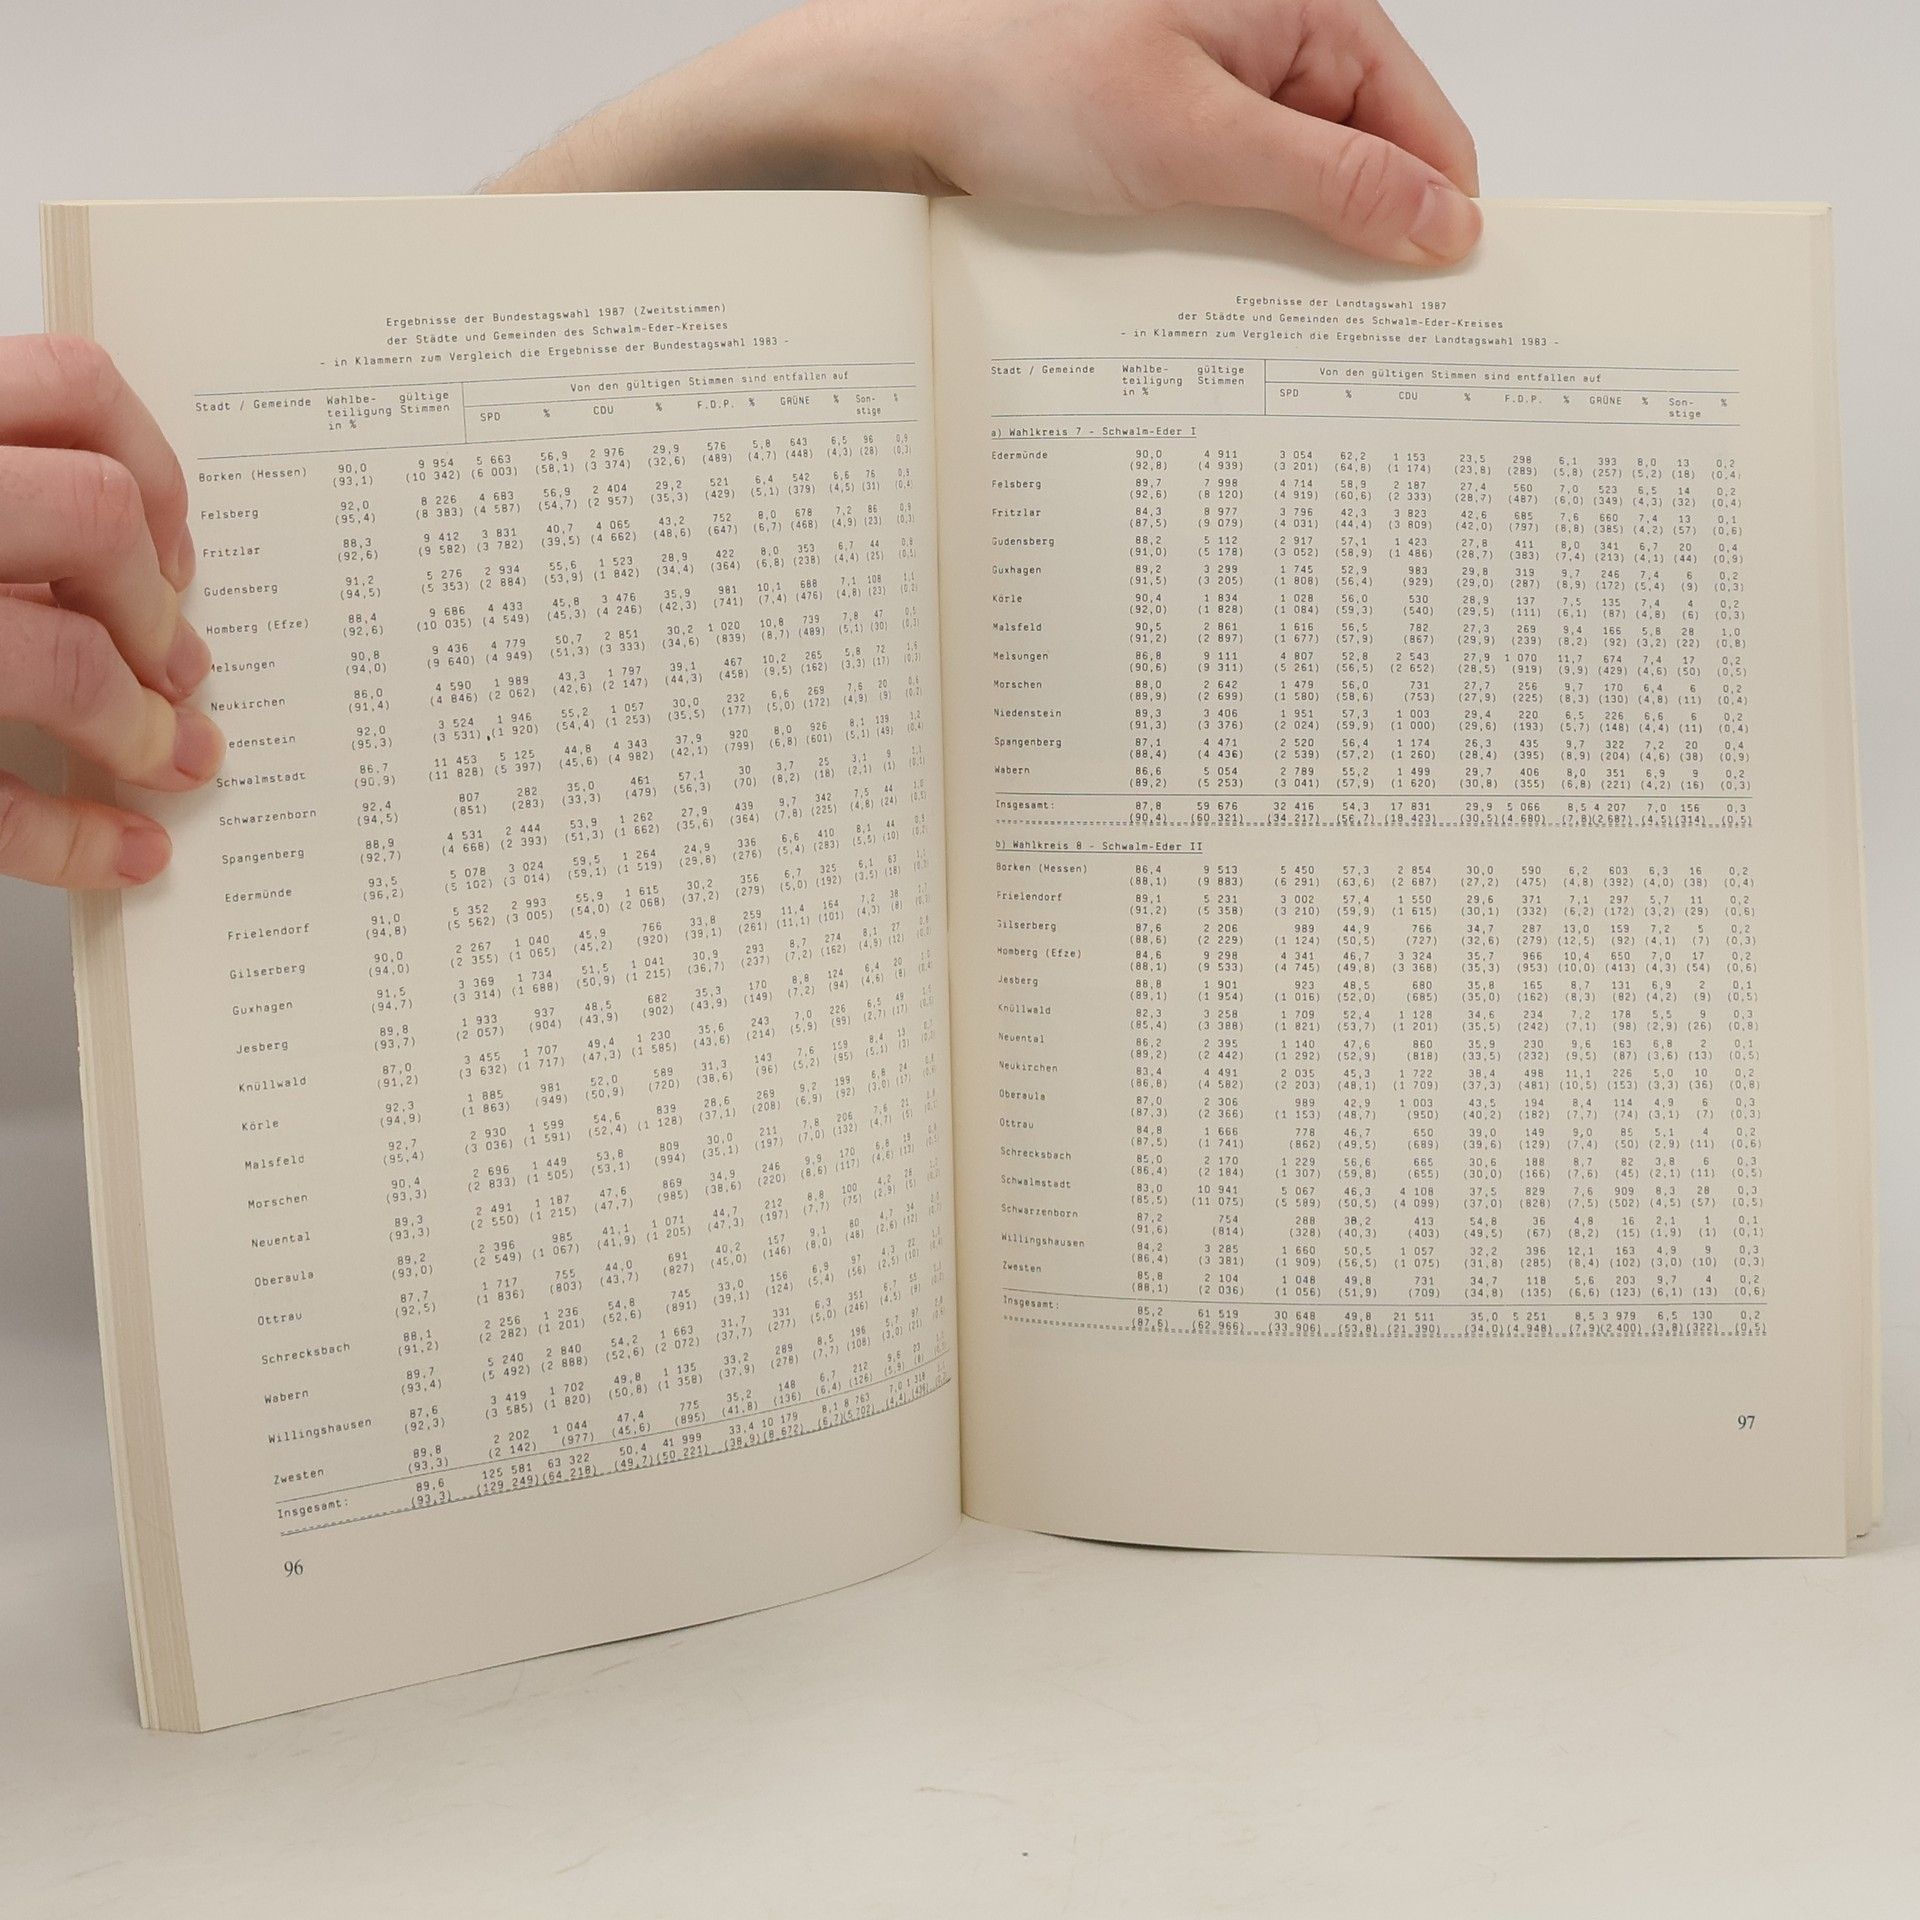 Ergebnisse der Bundestagswahl 1987 (Zweitstimmen)
der Städte und Gemeinden des Schwalm-Eder-Kreises
- in Klammern zum Vergleich die Ergebnisse der Bundestagswahl 1983 -
Stadt / Gemeinde Wahlbe- gültige Von den gültigen Stimmen sind entfallen auf
teiligung Stimmen SPD % CDU % F.D.P. % GRÜNE % Son- %
in % stige
Borken (Hessen) 90,0 9 954 5 663 56,9 2 976 29,9 576 5,8 643 6,5 96
(93,1) (10 342) (6 003) (58,1) (3 374) (32,6) (489) (4,7) (448) (4,3) (28)
Felsberg 92,0 8 226 4 683 56,9 2 404 29,2 521 6,4 542 6,6 76
(95,4) (8 383) (4 587) (54,7) (2 957) (35,3) (429) (5,1) (379) (4,5) (31)
Fritzlar 88,3 9 412 3 831 40,7 4 065 43,2 752 8,0 678 7,2 86
(92,6) (9 582) (3 782) (39,5) (4 662) (48,6) (647) (6,7) (468) (4,9) (23)
Gudensberg 91,2 5 276 2 934 55,6 1 523 28,9 422 8,0 353 6,7 44
(94,5) (5 353) (2 884) (53,9) (1 842) (34,4) (364) (6,8) (238) (4,4) (25)
Homberg (Efze) 88,4 9 686 4 433 45,8 3 476 35,9 981 10,1 688 7,1 108
(92,6) (10 035) (4 549) (45,3) (4 246) (42,3) (741) (7,4) (476) (4,8) (23)
Melsungen 90,8 9 436 4 779 50,7 2 851 30,2 1 020 10,8 739 7,8 47
(94,0) (9 640) (4 949) (51,3) (3 333) (34,6) (839) (8,7) (489) (5,1) (30)
Neukirchen 86,0 4 590 1 989 43,3 1 797 39,1 467 10,2 265 5,8 72
(91,4) (4 846) (2 062) (42,6) (2 147) (44,3) (458) (9,5) (162) (3,3) (17)
edenstein 92,0 3 524 1 946 55,2 1 057 30,0 232 6,6 269 7,6 20
(95,3) (3 531) (1 920) (54,4) (1 253) (35,5) (177) (5,0) (172) (4,9) (9)
Schwalmstadt 86,7 11 453 5 125 44,8 4 343 37,9 920 8,0 926 8,1 139
(90,9) (11 828) (5 397) (45,6) (4 982) (42,1) (799) (6,8) (601) (5,1) (49)
Schwarzenborn 92,4 807 282 35,0 461 57,1 30 3,7 25 3,1 9
(94,5) (851) (283) (33,3) (479) (56,3) (70) (8,2) (18) (2,1) (1)
Spangenberg 88,9 4 531 2 444 53,9 1 262 27,9 439 9,7 342 7,5 44
(92,7) (4 668) (2 393) (51,3) (1 662) (35,6) (364) (7,8) (225) (4,8) (24)
Edermünde 93,5 5 078 3 024 59,5 1 264 24,9 336 6,6 410 8,1 44
(96,2) (5 102) (3 014) (59,1) (1 519) (29,8) (276) (5,4) (283) (5,5) (10)
Frielendorf 91,0 5 352 2 993 55,9 1 615 30,2 356 6,7 325 6,1 63
(94,8) (5 562) (3 005) (54,0) (2 068) (37,2) (279) (5,0) (192) (3,5) (18)
Gilserberg 90,0 2 267 1 040 45,9 766 33,8 259 11,4 164 7,2 38
(94,0) (2 355) (1 065) (45,2) (920) (39,1) (261) (11,1) (101) (4,3) (8)
Guxhagen 91,5 3 369 1 734 51,5 1 041 30,9 293 8,7 274 8,1 27
(94,7) (3 314) (1 688) (50,9) (1 215) (36,7) (237) (7,2) (162) (4,9) (12)
Jesberg 89,8 1 933 937 48,5 682 35,3 170 8,8 124 6,4 20
(93,7) (2 057) (904) (43,9) (902) (43,9) (149) (7,2) (94) (4,6) (8)
Knüllwald 87,0 3 455 1 707 49,4 1 230 35,6 243 7,0 226 6,5 49
(91,2) (3 632) (1 717) (47,3) (1 585) (43,6) (214) (5,9) (99) (2,7) (17)
Körle 92,3 1 885 981 52,0 589 31,3 143 7,6 159 8,4 13
(94,9) (1 863) (949) (50,9) (720) (38,6) (96) (5,2) (95) (5,1) (3)
Malsfeld 92,7 2 930 1 599 54,6 839 28,6 269 9,2 199 6,8 24
(95,4) (3 036) (1 591) (52,4) (1 128) (37,1) (208) (6,9) (92) (3,0) (17)
Morschen 90,4 2 696 1 449 53,8 809 30,0 211 7,8 206 7,6 21
(93,3) (2 833) (1 505) (53,1) (994) (35,1) (197) (7,0) (132) (4,7) (5)
Neuental 89,3 2 491 1 187 47,6 869 34,9 246 9,9 170 6,8 19
(93,3) (2 550) (1 215) (47,7) (985) (38,6) (220) (8,6) (117) (4,6)
Oberaula 89,2 2 396 985 41,1 1 071 44,7 212 8,8 100 4,2 28
(93,0) (2 549) (1 067) (41,9) (1 205) (47,3) (197) (7,7) (75) (2,9) (5)
Ottrau 87,7 1 717 755 44,0 691 40,2 157 9,1 80 4,7 34
(92,5) (1 836) (803) (43,7) (827) (45,0) (146) (8,0) (48) (2,6) (12)
Schrecksbach 88,1 2 256 1 236 54,8 745 33,0 156 6,9 97 4,3 22
(91,2) (2 282) (1 201) (52,6) (891) (39,1) (124) (5,4) (56) (2,5) (10)
Wabern 89,7 5 240 2 840 54,2 1 663 31,7 331 6,3 351 6,7 55
(93,4) (5 492) (2 888) (52,6) (2 072) (37,7) (277) (5,0) (246) (4,5) (9)
Willingshausen 87,6 3 419 1 702 49,8 1 135 33,2 289 8,5 196 5,7 97
(92,3) (3 585) (1 820) (50,8) (1 358) (37,9) (278) (7,7) (108) (3,0) (21)
Zwesten 89,8 2 202 1 044 47,4 775 35,2 148 6,7 212 9,6 23
(93,3) (2 142) (977) (45,6) (895) (41,8) (136) (6,4) (126) (5,9) (8)
Insgesamt: 89,6 125 581 63 322 50,4 41 999 33,4 10 179 8,1 8 763 7,0 1 318
(93,3) (129 249) (64 218) (49,7) (50 221) (38,9) (8 672) (6,7) (5 702) (4,4)
96
Ergebnisse der Landtagswahl 1987
der Städte und Gemeinden des Schwalm-Eder-Kreises
- in Klammern zum Vergleich die Ergebnisse der Landtagswahl 1983 -
Stadt / Gemeinde Wahlbe- gültige Von den gültigen Stimmen sind entfallen auf
teiligung Stimmen SPD % CDU % F.D.P. % GRÜNE % Son- %
in % stige
a) Wahlkreis 7 - Schwalm-Eder I
Edermünde 90,0 4 911 3 054 62,2 1 153 23,5 298 6,1 393 8,0 13 0,2
(92,8) (4 939) (3 201) (64,8) (1 174) (23,8) (289) (5,8) (257) (5,2) (18) (0,4)
Felsberg 89,7 7 998 4 714 58,9 2 187 27,4 560 7,0 523 6,5 14 0,2
(92,6) (8 120) (4 919) (60,6) (2 333) (28,7) (487) (6,0) (349) (4,3) (32) (0,4)
Fritzlar 84,3 8 977 3 796 42,3 3 823 42,6 685 7,6 660 7,4 13 0,1
(87,5) (9 079) (4 031) (44,4) (3 809) (42,0) (797) (8,8) (385) (4,2) (57) (0,6)
Gudensberg 88,2 5 112 2 917 57,1 1 423 27,8 411 8,0 341 6,7 20 0,4
(91,0) (5 178) (3 052) (58,9) (1 486) (28,7) (383) (7,4) (213) (4,1) (44) (0,9)
Guxhagen 89,2 3 299 1 745 52,9 983 29,8 319 9,7 246 7,4 6 0,2
(91,5) (3 205) (1 808) (56,4) (929) (29,0) (287) (8,9) (172) (5,4) (9) (0,3)
Körle 90,4 1 834 1 028 56,0 530 28,9 137 7,5 135 7,4 4 0,2
(92,0) (1 828) (1 084) (59,3) (540) (29,5) (111) (6,1) (87) (4,8) (6) (0,3)
Malsfeld 90,5 2 861 1 616 56,5 782 27,3 269 9,4 166 5,8 28 1,0
(91,2) (2 897) (1 677) (57,9) (867) (29,9) (239) (8,2) (92) (3,2) (22) (0,8)
Melsungen 86,8 9 111 4 807 52,8 2 543 27,9 1 070 11,7 674 7,4 17 0,2
(90,6) (9 311) (5 261) (56,5) (2 652) (28,5) (919) (9,9) (429) (4,6) (50) (0,5)
Morschen 88,0 2 642 1 479 56,0 731 27,7 256 9,7 170 6,4 6 0,2
(89,9) (2 699) (1 580) (58,6) (753) (27,9) (225) (8,3) (130) (4,8) (11) (0,4)
Niedenstein 89,3 3 406 1 951 57,3 1 003 29,4 220 6,5 226 6,6 6 0,2
(91,3) (3 376) (2 024) (59,9) (1 000) (29,6) (193) (5,7) (148) (4,4) (11) (0,4)
Spangenberg 87,1 4 471 2 520 56,4 1 174 26,3 435 9,7 322 7,2 20 0,4
(88,4) (4 436) (2 539) (57,2) (1 260) (28,4) (395) (8,9) (204) (4,6) (38) (0,9)
Wabern 86,6 5 054 2 789 55,2 1 499 29,7 406 8,0 351 6,9 9 0,2
(89,2) (5 253) (3 041) (57,9) (1 620) (30,8) (355) (6,8) (221) (4,2) (16) (0,3)
Insgesamt: 87,8 59 676 32 416 54,3 17 831 29,9 5 066 8,5 4 207 7,0 156 0,3
(90,4) (60 321) (34 217) (56,7) (18 423) (30,5) (4 680) (7,8) (2 687) (4,5) (314) (0,5)
b) Wahlkreis 8 - Schwalm-Eder II
Borken (Hessen) 86,4 9 513 5 450 57,3 2 854 30,0 590 6,2 603 6,3 16 0,2
(88,1) (9 883) (6 291) (63,6) (2 687) (27,2) (475) (4,8) (392) (4,0) (38) (0,4)
Frielendorf 89,1 5 231 3 002 57,4 1 550 29,6 371 7,1 297 5,7 11 0,2
(91,2) (5 358) (3 210) (59,9) (1 615) (30,1) (332) (6,2) (172) (3,2) (29) (0,6)
Gilserberg 87,6 2 206 989 44,9 766 34,7 287 13,0 159 7,2 5 0,2
(88,6) (2 229) (1 124) (50,5) (727) (32,6) (279) (12,5) (92) (4,1) (7) (0,3)
Homberg (Efze) 84,6 9 298 4 341 46,7 3 324 35,7 966 10,4 650 7,0 17 0,2
(88,1) (9 533) (4 745) (49,8) (3 368) (35,3) (953) (10,0) (413) (4,3) (54) (0,6)
Jesberg 88,8 1 901 923 48,5 680 35,8 165 8,7 131 6,9 2 0,1
(89,1) (1 954) (1 016) (52,0) (685) (35,0) (162) (8,3) (82) (4,2) (9) (0,5)
Knüllwald 82,3 3 258 1 709 52,4 1 128 34,6 234 7,2 178 5,5 9 0,3
(85,4) (3 388) (1 821) (53,7) (1 201) (35,5) (242) (7,1) (98) (2,9) (26) (0,8)
Neuental 86,2 2 395 1 140 47,6 860 35,9 230 9,6 163 6,8 2 0,1
(89,2) (2 442) (1 292) (52,9) (818) (33,5) (232) (9,5) (87) (3,6) (13) (0,5)
Neukirchen 83,4 4 491 2 035 45,3 1 722 38,4 498 11,1 226 5,0 10 0,2
(86,8) (4 582) (2 203) (48,1) (1 709) (37,3) (481) (10,5) (153) (3,3) (36) (0,8)
Oberaula 87,0 2 306 989 42,9 1 003 43,5 194 8,4 114 4,9 6 0,3
(87,3) (2 366) (1 153) (48,7) (950) (40,2) (182) (7,7) (74) (3,1) (7) (0,3)
Ottrau 84,8 1 666 778 46,7 650 39,0 149 9,0 85 5,1 4 0,2
(87,5) (1 741) (862) (49,5) (689) (39,6) (129) (7,4) (50) (2,9) (11) (0,6)
Schrecksbach 85,0 2 170 1 229 56,6 665 30,6 188 8,7 82 3,8 6 0,3
(86,4) (2 184) (1 307) (59,8) (655) (30,0) (166) (7,6) (45) (2,1) (11) (0,5)
Schwalmstadt 83,0 10 941 5 067 46,3 4 108 37,5 829 7,6 909 8,3 28 0,3
(85,5) (11 075) (5 589) (50,5) (4 099) (37,0) (828) (7,5) (502) (4,5) (57) (0,5)
Schwarzenborn 87,2 754 288 38,2 413 54,8 36 4,8 16 2,1 1 0,1
(91,6) (814) (328) (40,3) (403) (49,5) (67) (8,2) (15) (1,9) (1) (0,1)
Willingshausen 84,2 3 285 1 660 50,5 1 057 32,2 396 12,1 163 4,9 9 0,3
(86,4) (3 381) (1 909) (56,5) (1 075) (31,8) (285) (8,4) (102) (3,0) (10) (0,3)
Zwesten 85,8 2 104 1 048 49,8 731 34,7 118 5,6 203 9,7 4 0,2
(88,1) (2 036) (1 056) (51,9) (709) (34,8) (135) (6,6) (123) (6,1) (13) (0,6)
Insgesamt: 85,2 61 519 30 648 49,8 21 511 35,0 5 251 8,5 3 979 6,5 130 0,2
(87,6) (62 966) (33 906) (53,8) (21 390) (34,0) (4 948) (7,9) (2 400) (3,8) (322) (0,5)
97